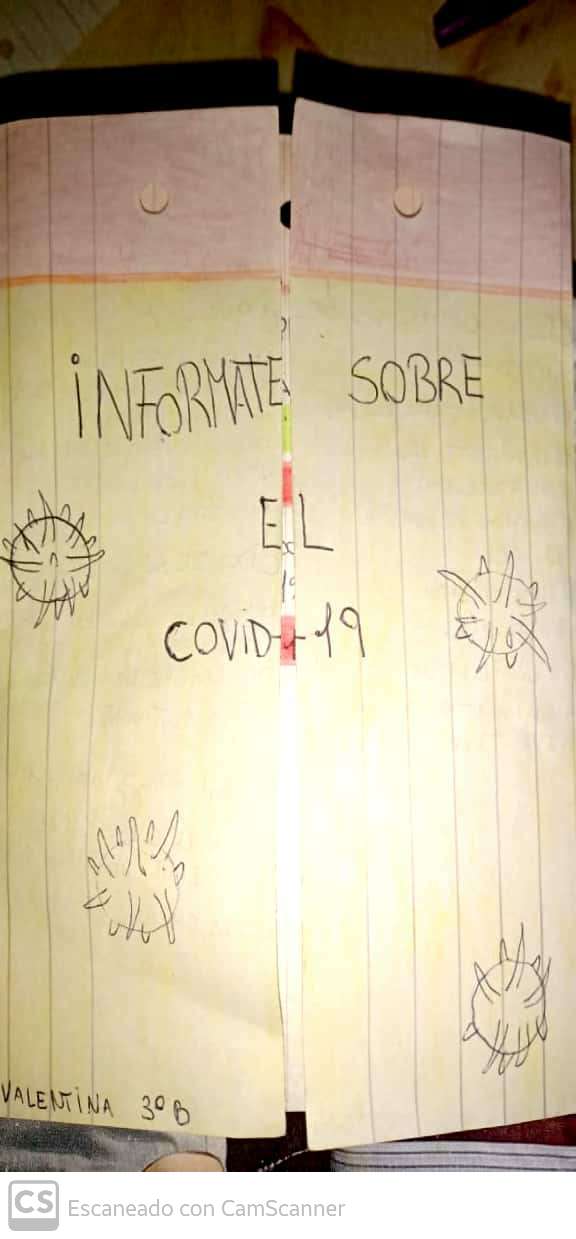 iNFORMATE SOBRE
EL
COViD-19
VALENTiNA 3º B
CS Escaneado con CamScanner